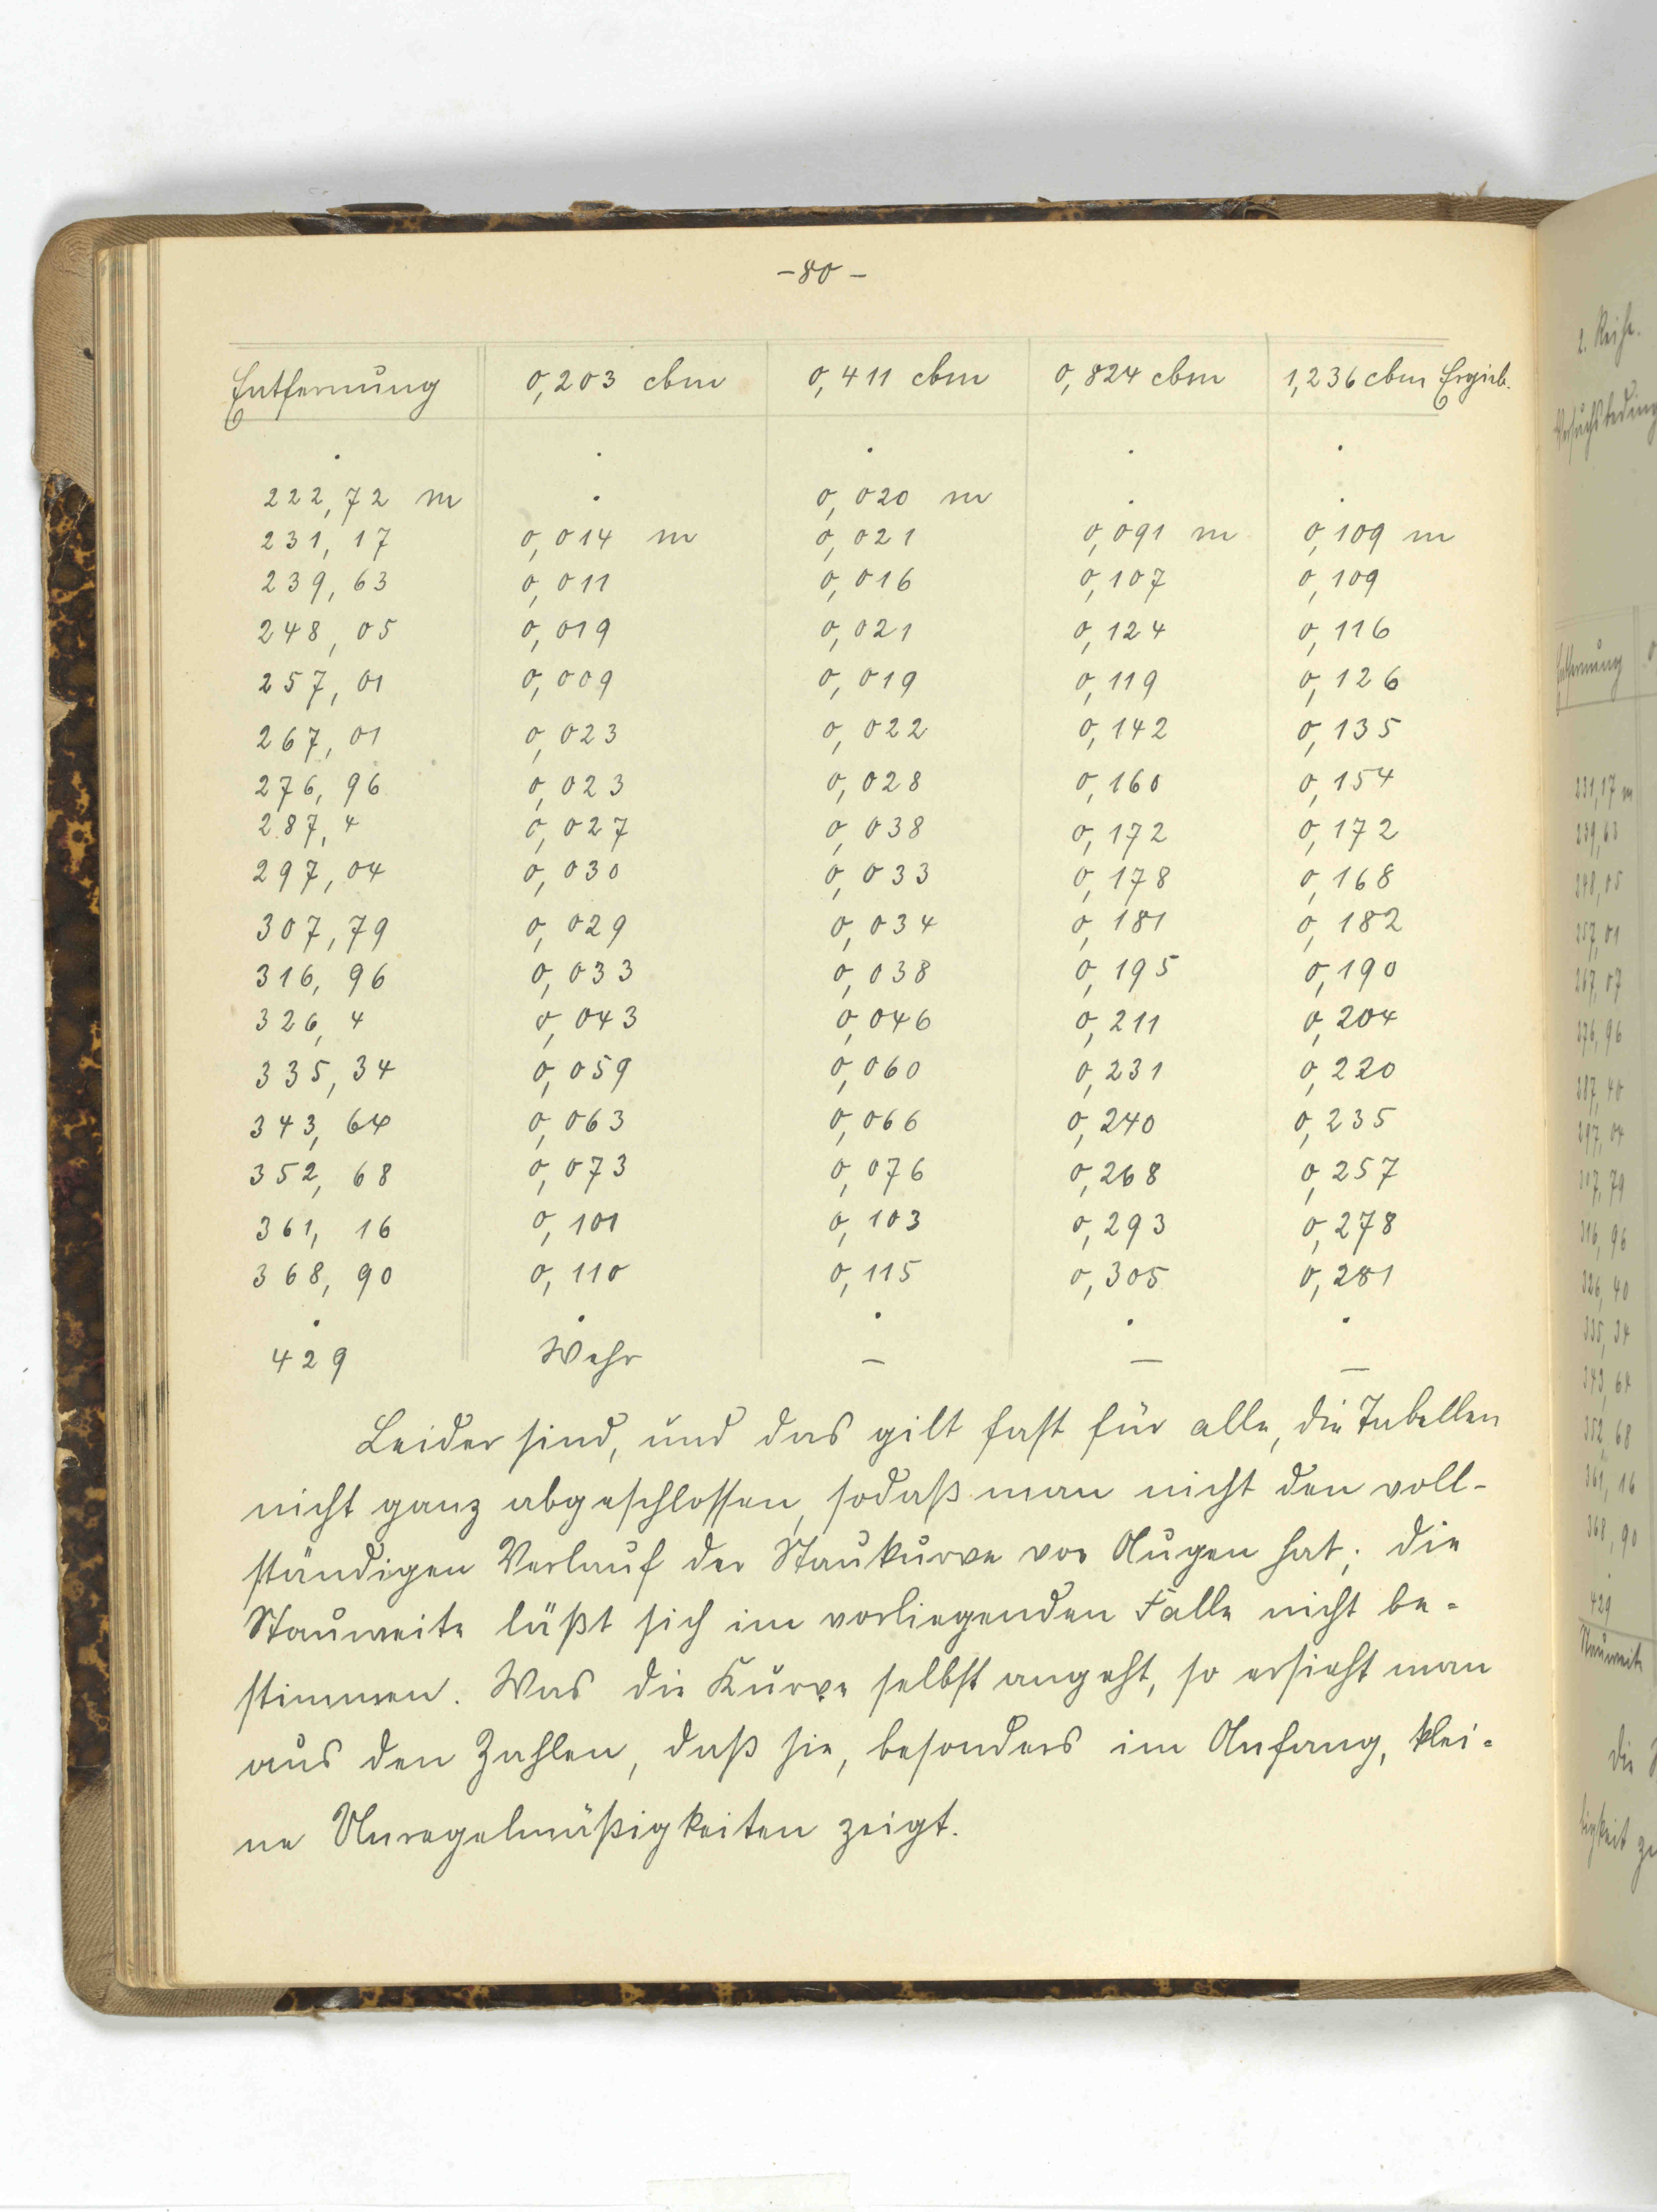 -80-
Entfernung 0,203 cbm 0,411 cbm 0,824 cbm 1,236 cbm Ergieb.
. . . . .
222,72 m . 0,020 m . .
231,17 0,014 m 0,021 0,091 m 0,109 m
239,63 0,011 0,016 0,107 0,109
248,05 0,019 0,021 0,124 0,116
257,01 0,009 0,019 0,119 0,126
267,01 0,023 0,022 0,142 0,135
276,96 0,023 0,028 0,160 0,154
287,4 0,027 0,038 0,172 0,172
297,04 0,030 0,033 0,178 0,168
307,79 0,029 0,034 0,181 0,182
316,96 0,033 0,038 0,195 0,190
326,4 0,043 0,046 0,211 0,204
335,34 0,059 0,060 0,231 0,220
343,64 0,063 0,066 0,240 0,235
352,68 0,073 0,076 0,268 0,257
361,16 0,101 0,103 0,293 0,278
368,90 0,110 0,115 0,305 0,281
. . . . .
429 Wehr — — —
Leider sind, und das gilt fast für alle, die Tabellen
nicht ganz abgeschlossen, sodaß man nicht den voll-
ständigen Verlauf der Staukurve vor Augen hat; die
Stauweite läßt sich im vorliegenden Falle nicht be-
stimmen. Was die Kurve selbst angeht, so ersieht man
aus den Zahlen, daß sie, besonders im Anfang, klei-
ne Unregelmäßigkeiten zeigt.
2. Reihe.
Versuchsbeding
Entfernung
231,17 m
239,63
248,05
257,01
267,07
276,96
287,40
297,04
307,79
316,96
326,40
335,34
343,64
352,68
361,16
368,90
429
Stauweite
Die